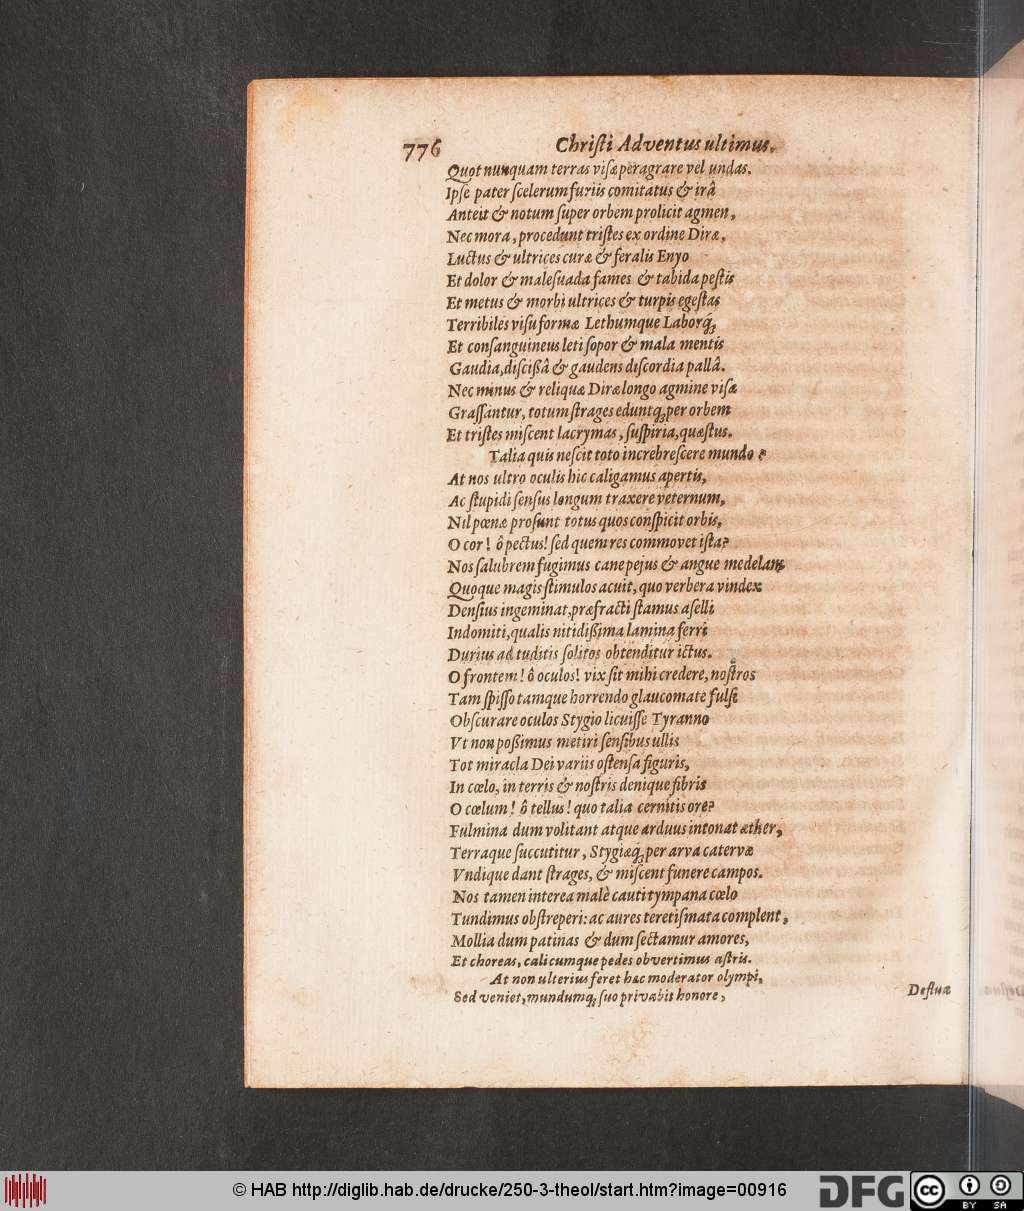 776 Chriſti Adventus ultimus.
Quot nunquam terras viſæ peragrare vel undas.
Ipſe pater ſcelerum furiis comitatus & irâ
Anteit & notum ſuper orbem prolicit agmen,
Nec mora, procedunt triſtes ex ordine Diræ,
Luctus & ultrices curæ & feralis Enyo
Et dolor & maleſuada fames & tabida peſtis
Et metus & morbi ultrices & turpis egeſtas
Terribiles viſu formæ Lethumque Laborq́;
Et conſanguineus leti ſopor & mala mentis
Gaudia, diſcißâ & gaudens diſcordia pallâ.
Nec minus & reliquæ Diræ longo agmine viſæ
Graſſantur, totum ſtrages eduntq; per orbem
Et triſtes miſcent lacrymas, ſuſpiria, quæſtus.
Talia quis neſcit toto increbreſcere mundo?
At nos ultro oculis hic caligamus apertis,
Ac ſtupidi ſenſus longum traxere veternum,
Nil pœnæ proſunt totus quos conſpicit orbis,
O cor! ô pectus! ſed quem res commovet iſta?
Nos ſalubrem fugimus cane pejus & angue medelam
Quoque magis ſtimulos acuit, quo verbera vindex
Denſius ingeminat, præfracti ſtamus aſelli
Indomiti, qualis nitidißima lamina ferri
Durius ad tuditis ſolitos obtenditur ictus.
O frontem! ô oculos! vix ſit mihi credere, noſtros
Tam ſpiſſo tamque horrendo glaucomate fulſi
Obſcurare oculos Stygio licuiſſe Tyranno
Vt non poßimus metiri ſenſibus ullis
Tot miracla Dei variis oſtenſa figuris,
In cœlo, in terris & noſtris denique fibris
O cœlum! ô tellus! quo talia cernitis ore?
Fulmina dum volitant atque arduus intonat æther,
Terraque ſuccutitur, Stygiæq́; per arva catervæ
Vndique dant ſtrages, & miſcent funere campos.
Nos tamen interea malè cauti tympana cœlo
Tundimus obſtreperi: ac aures teretiſmata complent,
Mollia dum patinas & dum ſectamur amores,
Et choreas, calicumque pedes obvertimus aſtris.
At non ulterius feret hæc moderator olympi,
Sed veniet, mundumq; ſuo privabit honore,
Deſtuæ
© HAB http://diglib.hab.de/drucke/250-3-theol/start.htm?image=00916
DFG
cc BY SA